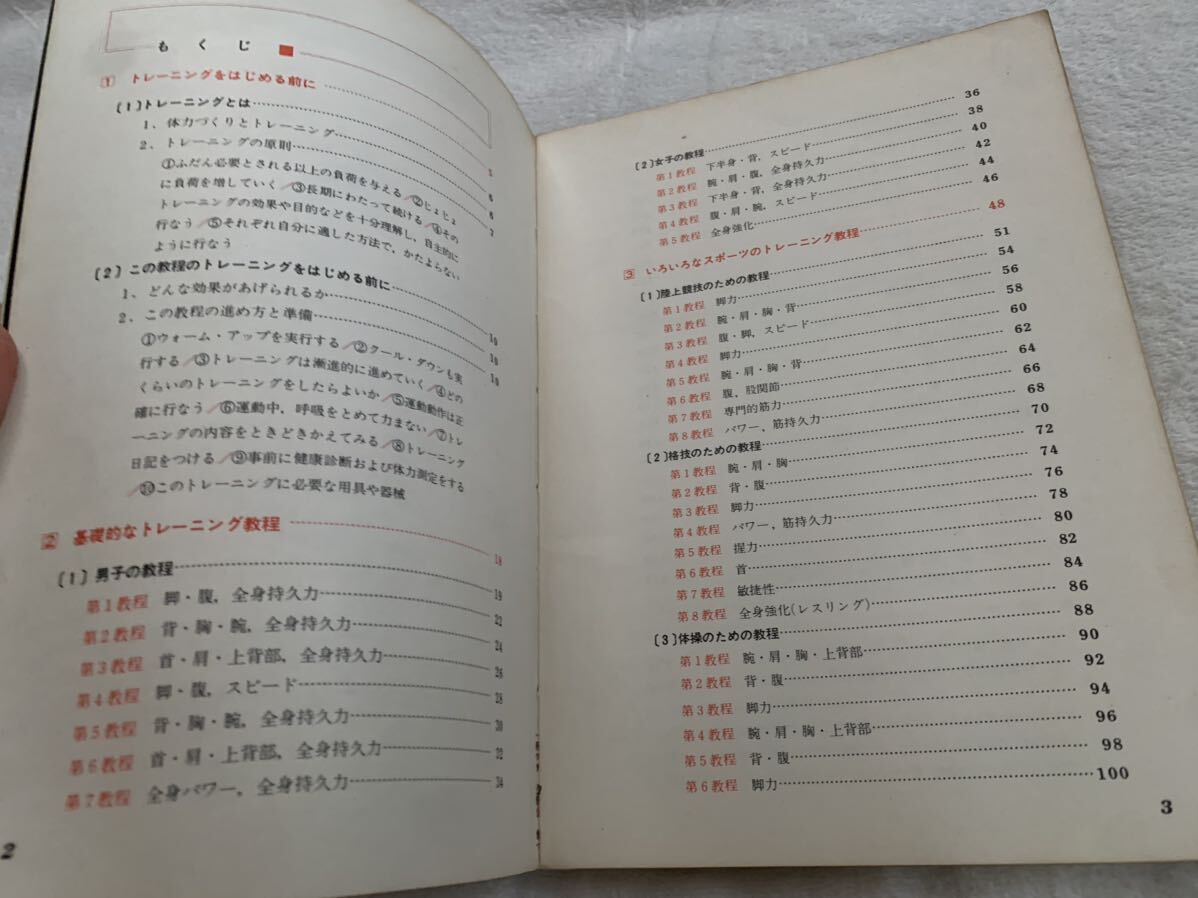 もくじ
1 トレーニングをはじめる前に……5
〔1〕トレーニングとは……6
1、体力づくりとトレーニング……6
2、トレーニングの原則……7
①ふだん必要とされる以上の負荷を与える/②じょじょ
に負荷を増していく/③長期にわたって続ける/④その
トレーニングの効果や目的などを十分理解し、自主的に
行なう/⑤それぞれ自分に適した方法で、かたよらない
ように行なう
〔2〕この教程のトレーニングをはじめる前に……10
1、どんな効果があげられるか……10
2、この教程の進め方と準備……10
①ウォーム・アップを実行する/②クール・ダウンも実
行する/③トレーニングは漸進的に進めていく/④どの
くらいのトレーニングをしたらよいか/⑤運動動作は正
確に行なう/⑥運動中、呼吸をとめて力まない/⑦トレ
ーニングの内容をときどきかえてみる/⑧トレーニング
日記をつける/⑨事前に健康診断および体力測定をする
/⑩このトレーニングに必要な用具や器械
2 基礎的なトレーニング教程……18
〔1〕男子の教程……19
第1教程 脚・腹、全身持久力……22
第2教程 背・胸・腕、全身持久力……24
第3教程 首・肩・上背部、全身持久力……26
第4教程 脚・腹、スピード……28
第5教程 背・胸・腕、全身持久力……30
第6教程 首・肩・上背部、全身持久力……32
第7教程 全身パワー、全身持久力……34
2
〔2〕女子の教程……36
第1教程 下半身・背、スピード……38
第2教程 腕・肩・腹、全身持久力……40
第3教程 下半身・背、全身持久力……42
第4教程 腹・肩・腕、スピード……44
第5教程 全身強化……46
3 いろいろなスポーツのトレーニング教程……48
〔1〕陸上競技のための教程……51
第1教程 脚力……54
第2教程 腕・肩・胸・背……56
第3教程 腹・脚、スピード……58
第4教程 脚力……60
第5教程 腕・肩・胸・背……62
第6教程 腹、股関節……64
第7教程 専門的筋力……66
第8教程 パワー、筋持久力……68
〔2〕格技のための教程……70
第1教程 腕・肩・胸……72
第2教程 背・腹……74
第3教程 脚力……76
第4教程 パワー、筋持久力……78
第5教程 握力……80
第6教程 首……82
第7教程 敏捷性……84
第8教程 全身強化(レスリング)……86
〔3〕体操のための教程……88
第1教程 腕・肩・胸・上背部……90
第2教程 背・腹……92
第3教程 脚力……94
第4教程 腕・肩・胸・上背部……96
第5教程 背・腹……98
第6教程 脚力……100
3